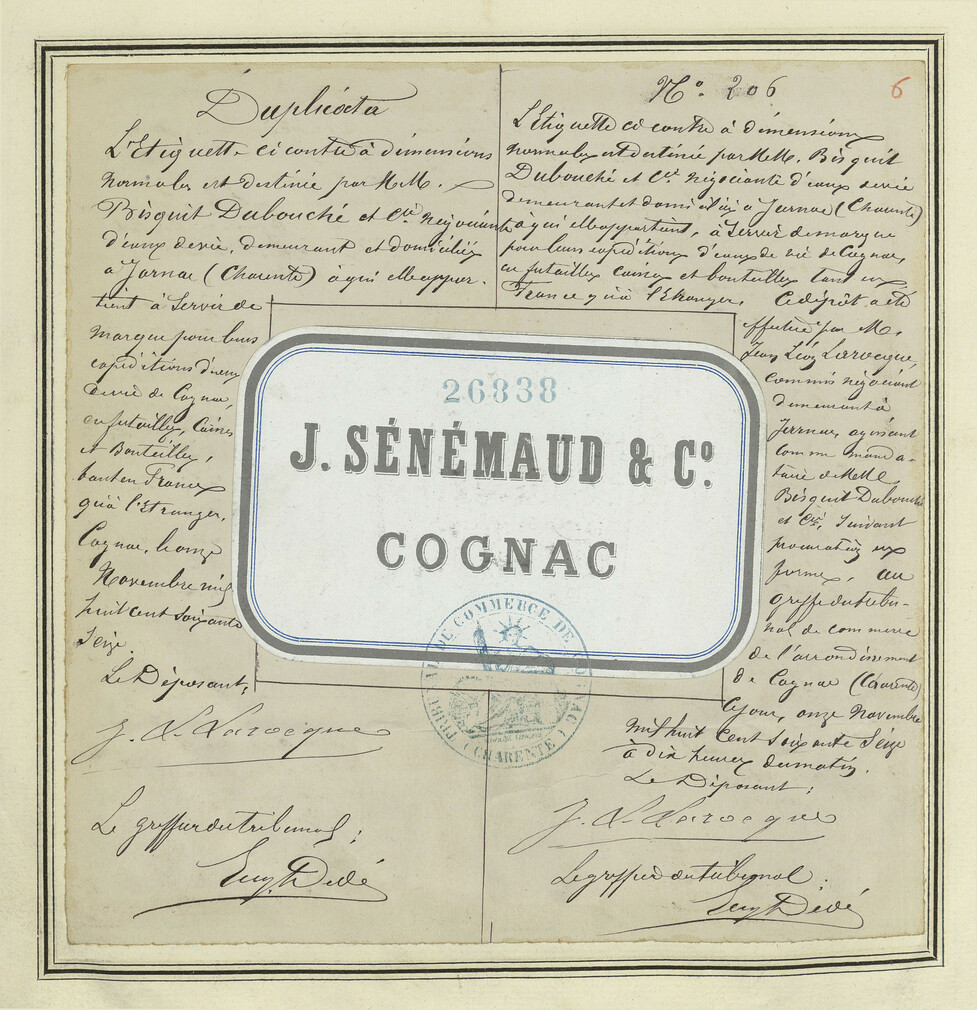 Duplicata
L'Etiquette ci contre à dimensions
normales est destinée par M.M.
Bisquit Dubouché et Cie négociants
d'eaux de vie, demeurant et domiciliés
à Jarnac (Charente) à qui elle appar-
tient à servir de
marque pour leurs
expéditions d'eaux
de vie de Cognac,
en futailles, Caisses
et Bouteilles,
tant en France
qu'à l'Etranger,
Cognac, le onze
Novembre mil
huit cent soixante
Seize.
Le Déposant,
J. L. Larocque
Le greffier du tribunal;
Eug Dédé
No. 206
6
L'Etiquette ci contre à dimensions
normales est destinée par M.M. Bisquit
Dubouché et Cie négociants d'eaux de vie
demeurant et domiciliés à Jarnac (Charente)
à qui elle appartient, à servir de marque
pour leurs expéditions d'eaux de vie de Cognac,
en futailles caisses et bouteilles tant en
France qu'à l'Etranger. Ce dépôt a été
effectué par M.
Jean Léon Larocque,
commis négociant
demeurant à
Jarnac, agissant
comme manda-
taire de M.M.
Bisquit Dubouché
et Cie, suivant
procuration en
forme, au
greffe du tribu-
nal de commerce
de l'arrondissement
de Cognac (Charente)
Ce jour, onze Novembre
mil huit Cent soixante Seize
à dix heures du matin.
Le Déposant;
J. L. Larocque
Le greffier du tribunal.
Eug Dédé
26838
J. SÉNÉMAUD & Co.
COGNAC
TRIBUNAL DE COMMERCE DE COGNAC
(CHARENTE)